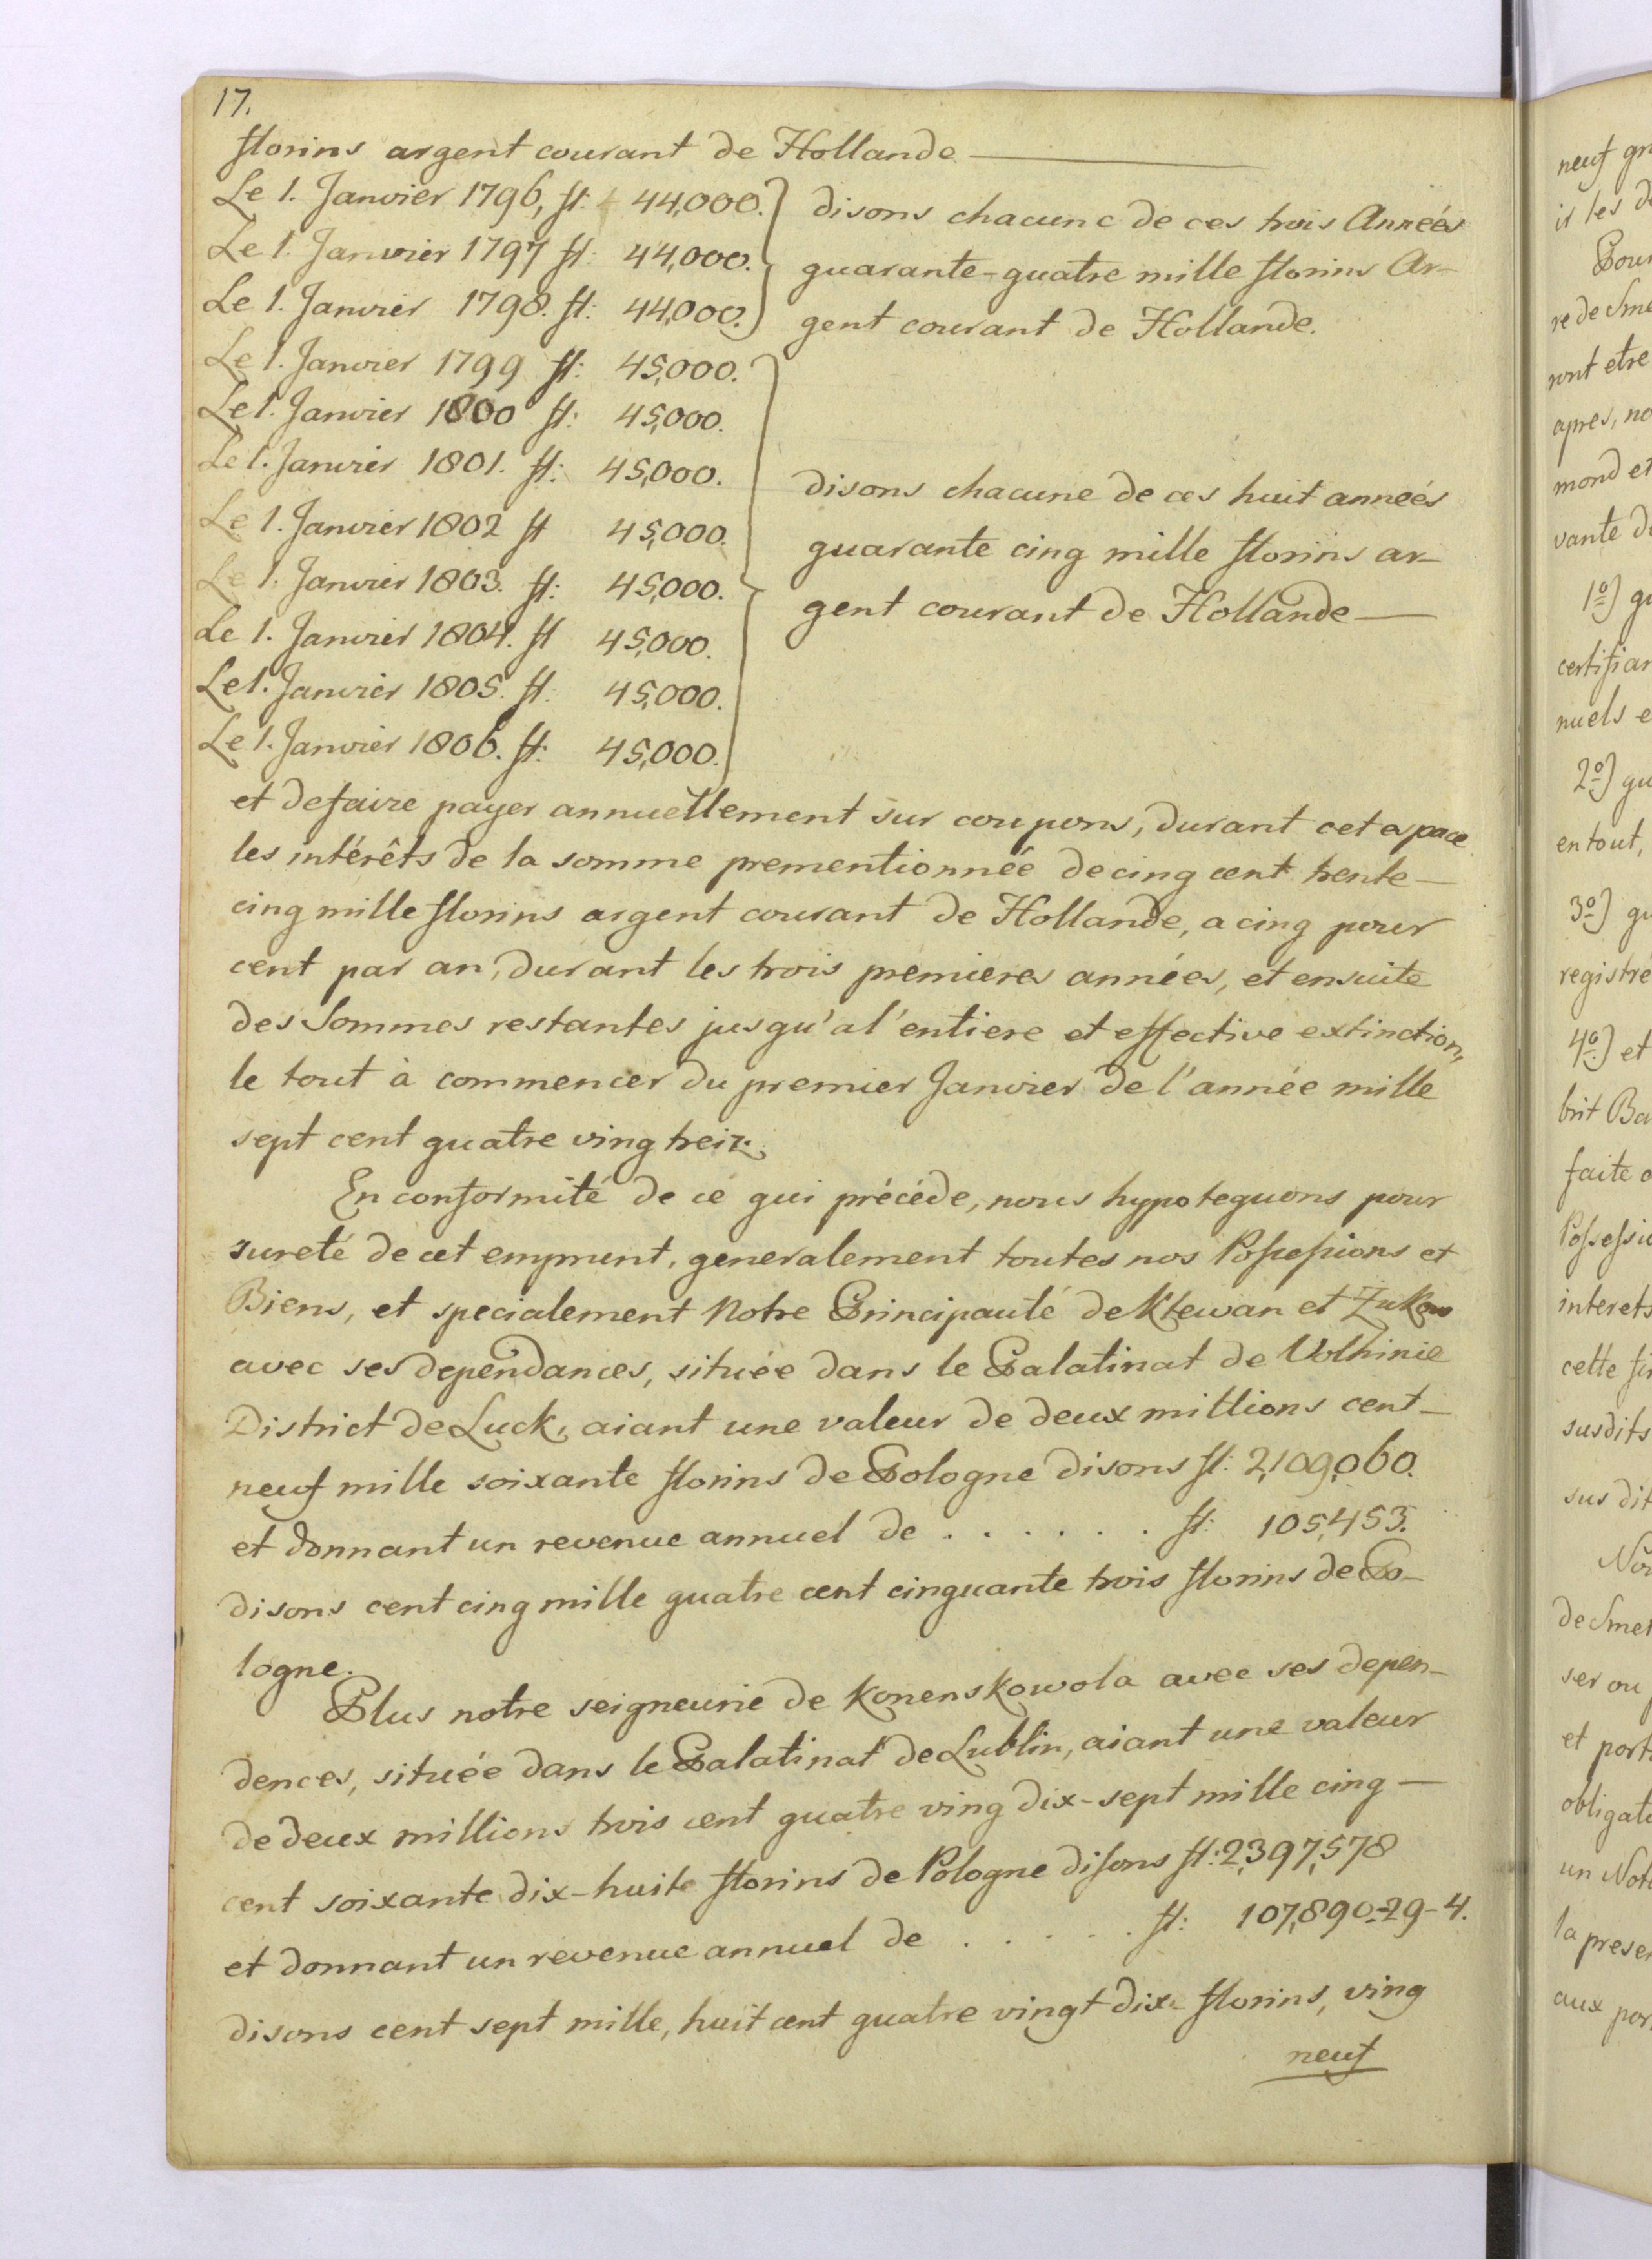 17.
florins argent courant de Hollande
Le 1. Janvier 1796, fl: 44,000.
Le 1. Janvier 1797 fl: 44,000.
Le 1. Janvier 1798. fl: 44,000.
disons chacune de ces trois Anneés
quarante-quatre mille florins Ar-
gent courant de Hollande.
Le 1. Janvier 1799 fl: 45,000.
Le 1. Janvier 1800 fl: 45,000.
Le 1. Janvier 1801. fl: 45,000.
Le 1. Janvier 1802 fl 45,000.
Le 1. Janvier 1803. fl: 45,000.
Le 1. Janvier 1804. fl 45,000.
Le 1. Janvier 1805. fl: 45,000.
Le 1. Janvier 1806. fl: 45,000.
disons chacune de ces huit anneés
quarante cinq mille florins ar-
gent courant de Hollande —
et defaire payer annuellement sur coupons, durant cet espace
les intérêts de la somme prementionnée de cinq cent trente —
cinq mille florins argent courant de Hollande, a cinq pour
cent par an, durant les trois premieres années, et ensuite
des Sommes restantes jusqu'a l'entiere et effective extinction,
le tout à commencer du premier Janvier de l'année mille
sept cent quatre ving treiz.
En conformité de ce qui précéde, nous hypotequons pour
sureté de cet emprunt, generalement toutes nos Possessions et
Biens, et specialement Notre Principauté de Klewan et Zukow
avec ses dependances, située dans le Palatinat de Volhinie
District de Luck, aiant une valeur de deux millions cent-
neuf mille soixante florins de Pologne disons fl: 2,109,060.
et donnant un revenue annuel de . . . . . . fl: 105,453.
disons cent cinq mille quatre cent cinquante trois florins de Po-
logne.
Plus notre seigneurie de Konenskowola avec ses depen-
dences, située dans le Palatinat de Lublin, aiant une valeur
de deux millions trois cent quatre ving dix-sept mille cinq —
cent soixante dix-huite florins de Pologne disons fl: 2,397,578
et donnant un revenue annuel de . . . . . fl: 107,890-29-4.
disons cent sept mille, huit cent quatre vingt dix florins, ving
neuf
neuf
ir les
re de Sme
ront etre
apres, no
mond et
vante
1º)
certifian
nuels e
2º)
en tout,
3º)
registre
4º) et
brit Ba
faite
Possessio
interets
cette
susdits
sus dit
de Smet
ser ou
et port
obligat
un Not
la prese
aux por